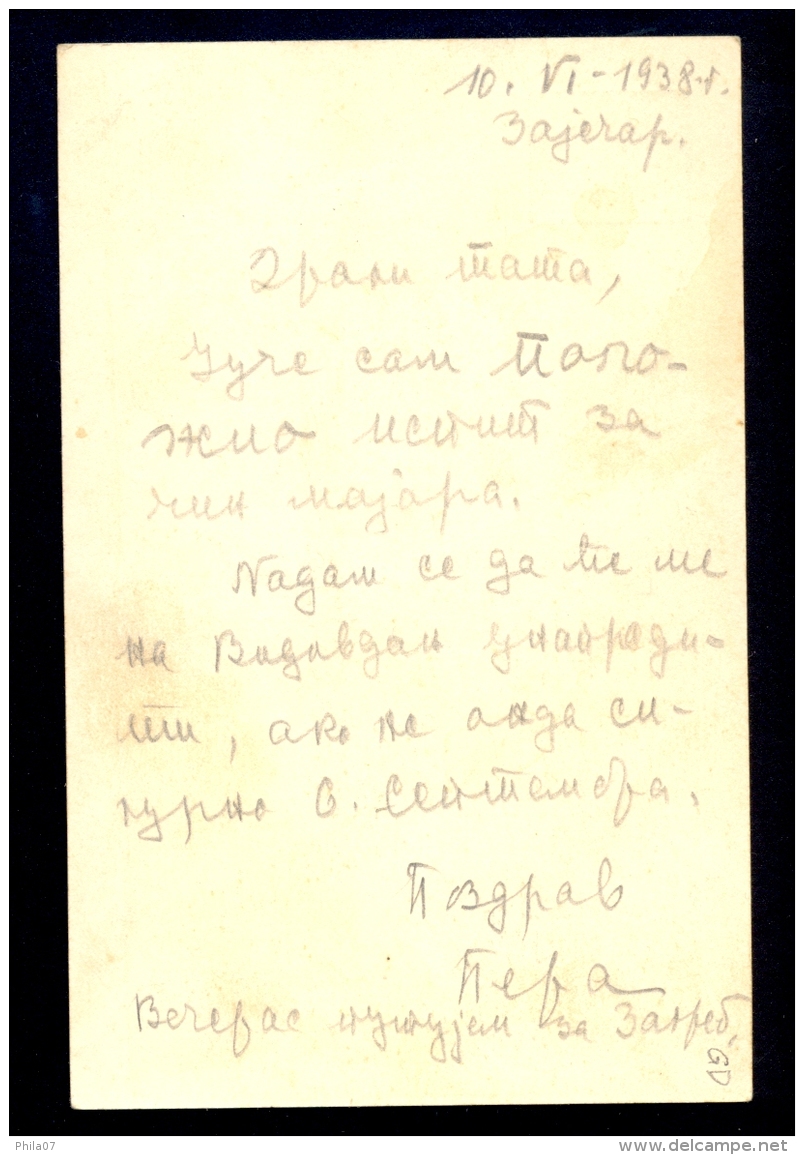 10. VI - 1938 г.
Зајечар.
Драги тата,
Јуче сам поло-
жио испит за
чин мајора.
Надам се да ће ме
на Видовдан унапреди-
ти, ако не онда си-
гурно 6. септембра.
Поздрав
Пера
Вечерас путујем за Загреб.
GD
Phila07
www.delcampe.net